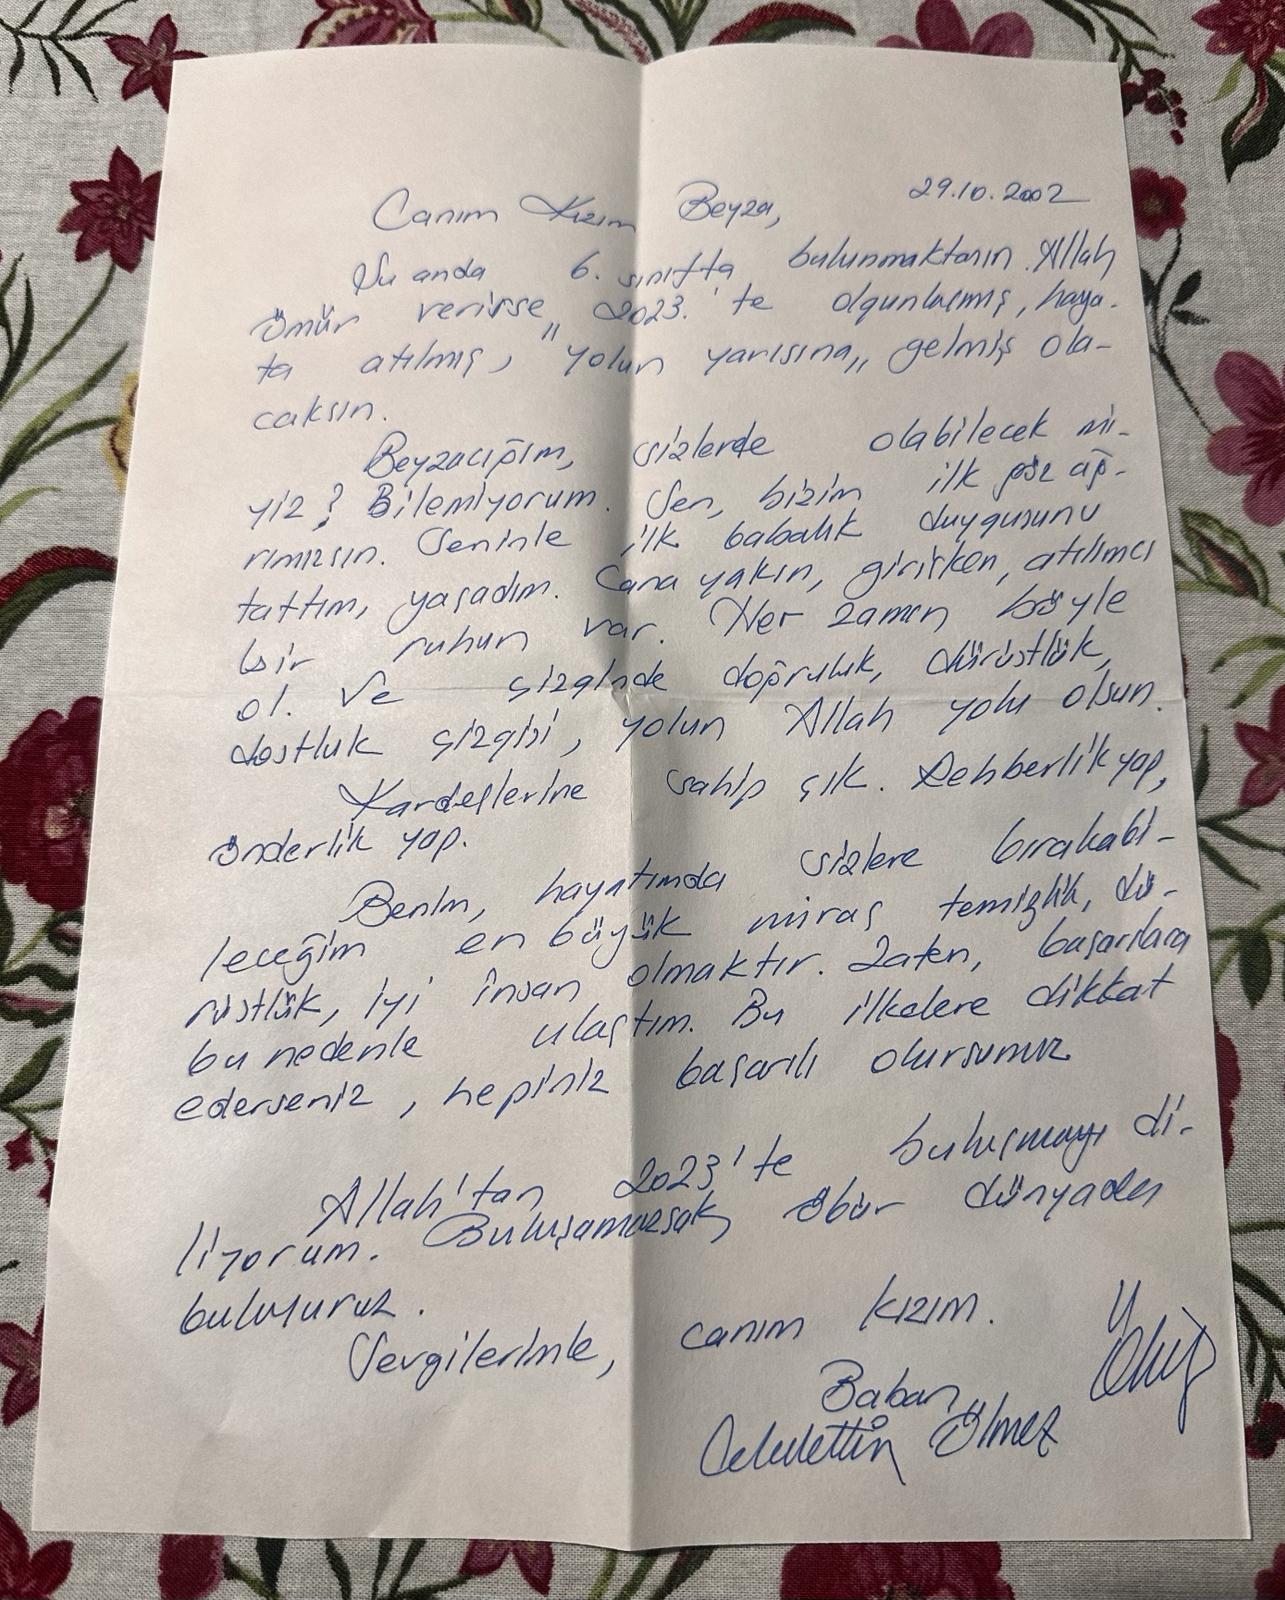 29.10.2002
Canım Kızım Beyza,
Şu anda 6. sınıfta bulunmaktasın. Allah
ömür verirse, 2023.'te olgunlaşmış, haya-
ta atılmış, "yolun yarısına" gelmiş ola-
caksın.
Beyzacığım, sizlerde olabilecek mi-
yiz? Bilemiyorum. Sen, bizim ilk göz ağ-
rımızsın. Seninle ilk babalık duygusunu
tattım, yaşadım. Cana yakın, girişken, atılımcı
bir ruhun var. Her zaman böyle
ol. Ve çizginde doğruluk, dürüstlük,
dostluk çizgisi, yolun Allah yolu olsun.
Kardeşlerine sahip çık. Rehberlik yap,
önderlik yap.
Benim, hayatımda sizlere bırakabi-
leceğim en büyük miras temizlik, dü-
rüstlük, iyi insan olmaktır. Zaten, başarılara
bu nedenle ulaştım. Bu ilkelere dikkat
ederseniz, hepiniz başarılı olursunuz
Allah'tan 2023'te buluşmayı di-
liyorum. Buluşamazsak, öbür dünyada
buluşuruz.
Sevgilerimle, canım kızım.
Baban
Celalettin Ölmez